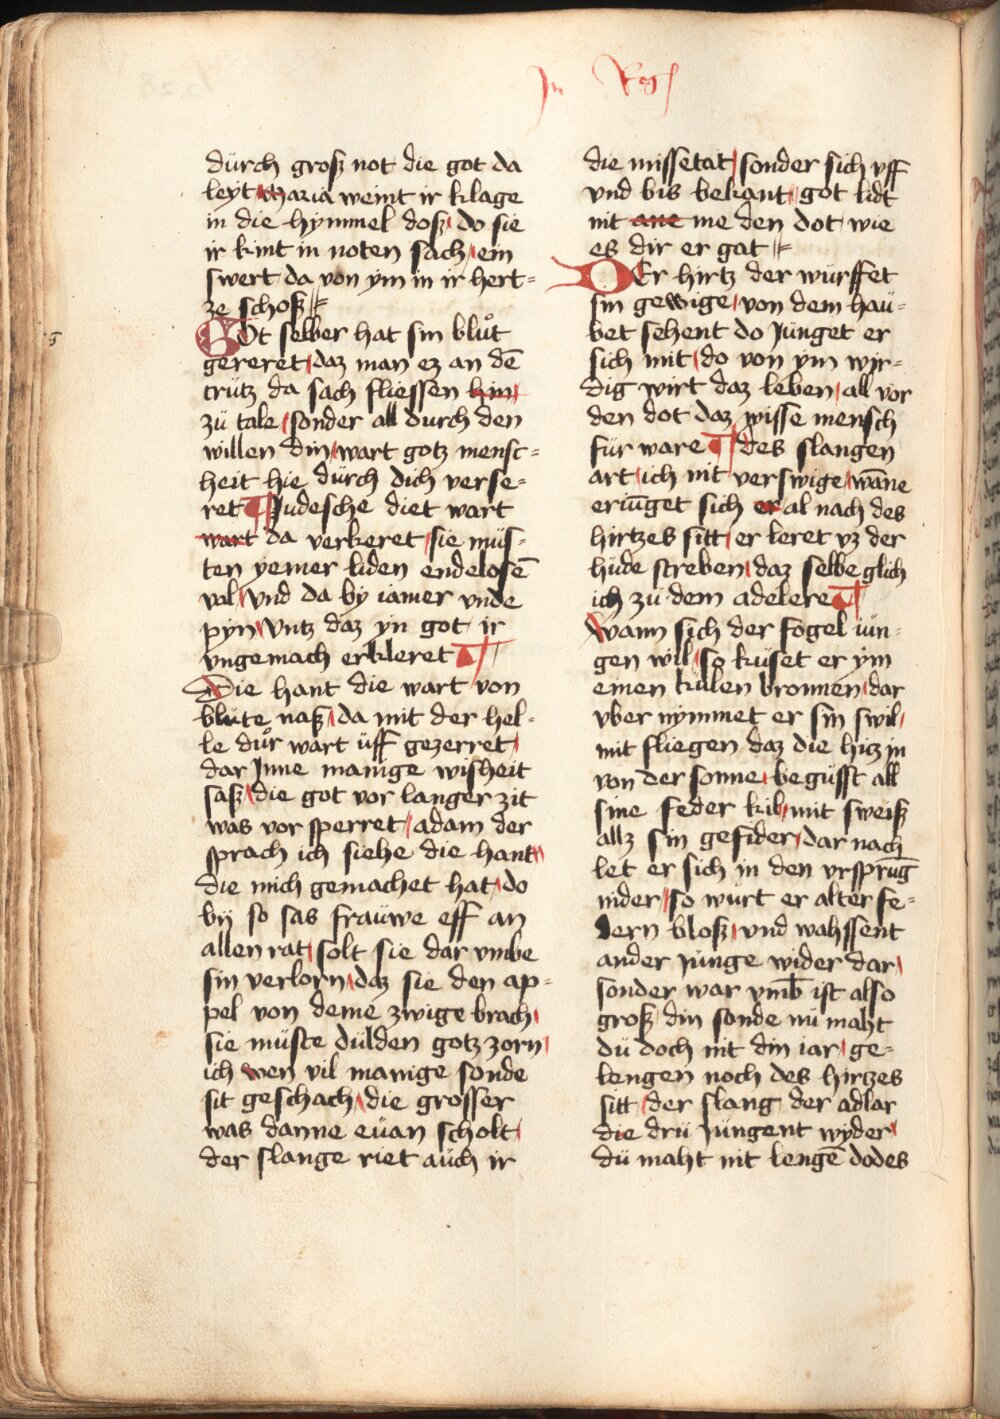 In Reg
dürch grosz not die got da
leyt maria weint ir klage
in die hymmel dosz do sie
ir kint in noten sach ein
swert da von ym in ir hert=
ze schosz
GOt selber hat sin blůt
gereret daz man ez an dē
crütz da sach fliessen hin
zü tale sonder all durch den
willen din wart gotz mensc=
heit hie dürch dich verse=
ret Judesche diet wart
wart da verkeret sie müs=
ten yemer liden endelosē
val vnd da by iamer vnde
pyn vntz daz yn got ir
vngemach erkleret
Die hant die wart von
blüte nasz da mit der hel=
le důr wart üff gezerret
dar Inne manige wisheit
sasz die got vor langer zit
was vor sperret adam der
sprach ich siehe die hant
die mich gemachet hat do
by so sas fraüwe eff an
allen rat solt sie dar vmbe
sin verlorn daz sie den ap=
pel von deme zwige brach
sie müste dülden gotz zorn
ich wen vil manige sonde
sit geschach die grosser
was danne eüan scholt
der slange riet aüch ir
die missetat sonder sich vff
vnd bis bekant got lidt
nit ane me den dot wie
es dir er gat
DEr hirtz der würffet
sin gewige von dem haü=
bet sehent do Jünget er
sich mit do von ym wir=
dig wirt daz leben all vor
den dot daz wisse mensch
für ware des slangen
art ich nit verswige wāne
eriūget sich er al nach des
hirtzes sitt er leret vz der
hüde streben daz selbe glich
ich zu dem adelere
Wann sich der fogel iün=
gen wil so küset er ym
einen külen bronnen dar
vber nymmet er sin swil
mit fliegen daz die hitz in
von der sonne begüsst all
sine feder kil mit sweisz
allz sin gefider dar nach
let er sich in den vrsprūg
nider so würt er alter fe=
dern blosz vnd wahssent
ander Jünge wider dar
sonder war vmb ist also
grosz din sonde nü maht
dü doch nit din iar ge=
lengen noch des hirtzes
sitt der slang der adlar
die drü Jüngent wyder
dü maht nit lengē dodes